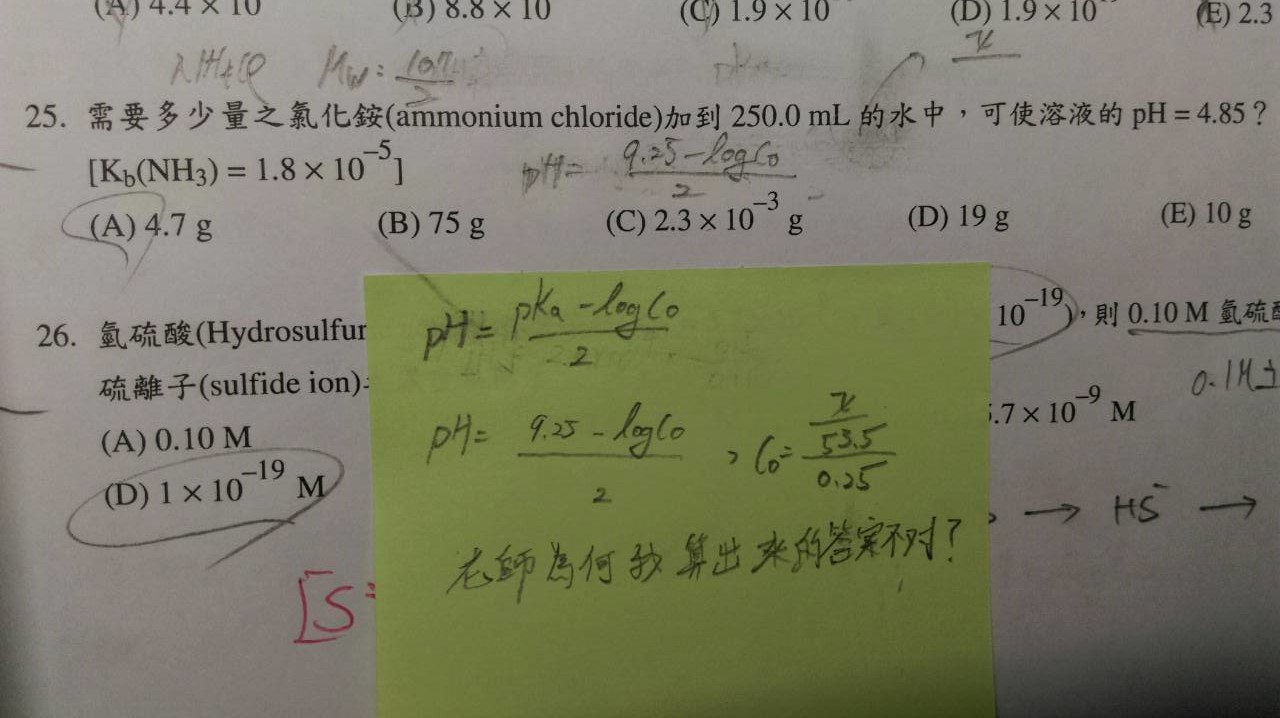 (A) 4.4 × 10 (B) 8.8 × 10 (C) 1.9 × 10 (D) 1.9 × 10 (E) 2.3
NH4Cl Mw: 107 / 2 pKa x
25. 需要多少量之氯化銨(ammonium chloride)加到 250.0 mL 的水中，可使溶液的 pH = 4.85？
[Kb(NH3) = 1.8 × 10⁻⁵] pH = (9.25 - log C0) / 2
(A) 4.7 g (B) 75 g (C) 2.3 × 10⁻³ g (D) 19 g (E) 10 g
pH = (pKa - log C0) / 2
26. 氫硫酸(Hydrosulfur 10⁻¹⁹)，則 0.10 M 氫硫
硫離子(sulfide ion) 0.1M
.7 × 10⁻⁹ M
pH = (9.25 - log C0) / 2 , C0 = (x / 53.5) / 0.25
(A) 0.10 M
(D) 1 × 10⁻¹⁹ M
→ HS⁻ →
老師為何我算出來的答案不对?
[S=